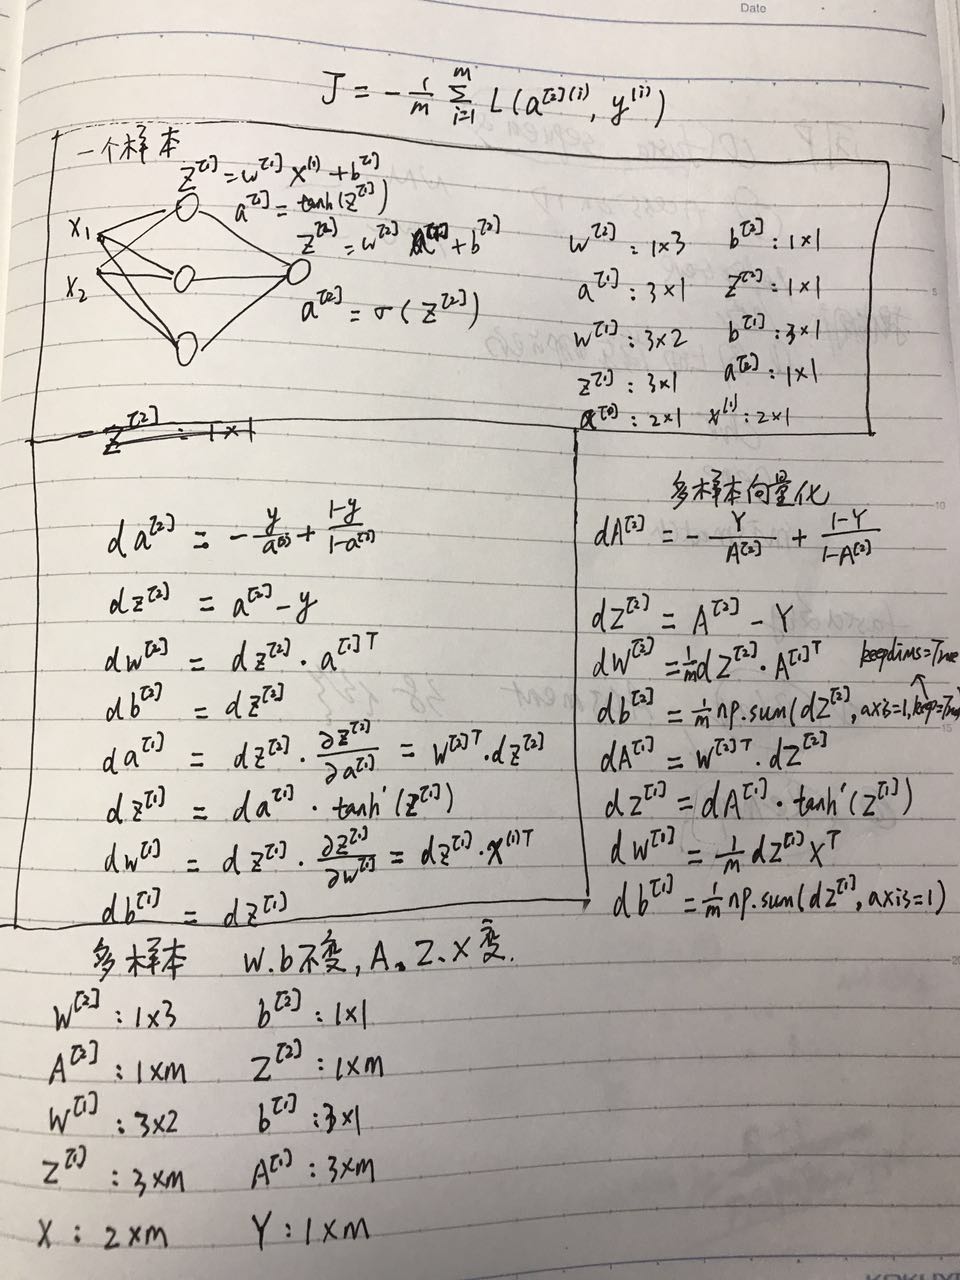 Date
J = -\frac{1}{m} \sum_{i=1}^{m} L(a^{[2](i)}, y^{(i)})
一个样本
z^{[1]} = w^{[1]} x^{(1)} + b^{[1]}
a^{[1]} = tanh(z^{[1]})
x_1
x_2
z^{[2]} = w^{[2]} a^{[1]} + b^{[2]}
a^{[2]} = σ(z^{[2]})
w^{[2]} : 1×3 b^{[2]} : 1×1
a^{[1]} : 3×1 z^{[2]} : 1×1
w^{[1]} : 3×2 b^{[1]} : 3×1
z^{[1]} : 3×1 a^{[2]} : 1×1
a^{[0]} : 2×1 x^{(1)} : 2×1
z^{[2]} : 1×1
da^{[2]} = -\frac{y}{a^{[2]}} + \frac{1-y}{1-a^{[2]}}
dz^{[2]} = a^{[2]} - y
dw^{[2]} = dz^{[2]} · a^{[1]T}
db^{[2]} = dz^{[2]}
da^{[1]} = dz^{[2]} · \frac{∂z^{[2]}}{∂a^{[1]}} = w^{[2]T} · dz^{[2]}
dz^{[1]} = da^{[1]} · tanh'(z^{[1]})
dw^{[1]} = dz^{[1]} · \frac{∂z^{[1]}}{∂w^{[1]}} = dz^{[1]} · x^{(1)T}
db^{[1]} = dz^{[1]}
多样本向量化
dA^{[2]} = -\frac{Y}{A^{[2]}} + \frac{1-Y}{1-A^{[2]}}
dZ^{[2]} = A^{[2]} - Y
dW^{[2]} = \frac{1}{m} dZ^{[2]} · A^{[1]T}
keepdims=True
db^{[2]} = \frac{1}{m} np.sum(dZ^{[2]}, axis=1, keep=True
dA^{[1]} = W^{[2]T} · dZ^{[2]}
dz^{[1]} = dA^{[1]} · tanh'(Z^{[1]})
dw^{[1]} = \frac{1}{m} dZ^{[1]} X^T
db^{[1]} = \frac{1}{m} np.sum(dZ^{[1]}, axis=1)
多样本 W.b不变, A、Z、X变.
W^{[2]} : 1×3 b^{[2]} : 1×1
A^{[2]} : 1×m Z^{[2]} : 1×m
W^{[1]} : 3×2 b^{[1]} : 3×1
Z^{[1]} : 3×m A^{[1]} : 3×m
X : 2×m Y : 1×m
5
10
15
20